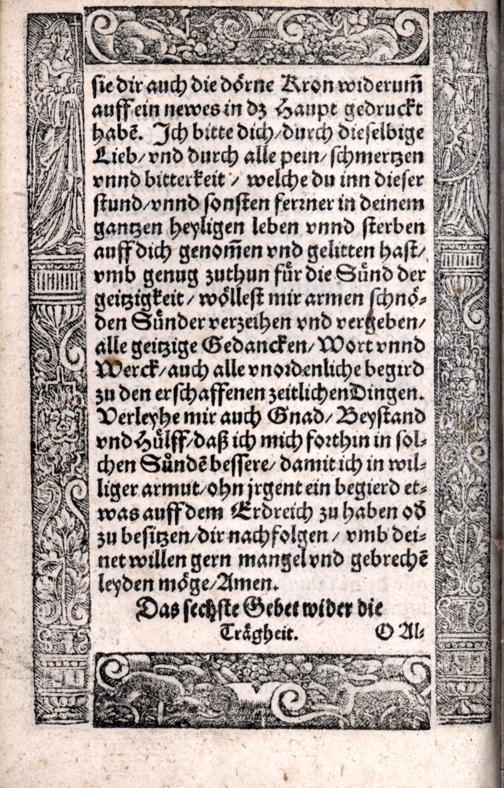 sie dir auch die dörne Kron widerum̃
auff ein newes in dz Haupt gedruckt
habẽ. Ich bitte dich/durch dieselbige
Lieb/vnd durch alle pein/schmertzen
vnnd bitterkeit/ welche du inn dieser
stund/vnnd sonsten ferrner in deinem
gantzen heyligen leben vnnd sterben
auff dich genom̃en vnd gelitten hast/
vmb genug zuthun für die Sünd der
geitzigkeit/ wöllest mir armen schnö-
den Sünder verzeihen vnd vergeben/
alle geitzige Gedancken/Wort vnnd
Werck/auch alle vnordenliche begird
zu den erschaffenen zeitlichen Dingen.
Verleyhe mir auch Gnad/Beystand
vnd Hülff/daß ich mich forthin in sol-
chen Sündẽ bessere/damit ich in wil-
liger armut/ohn jrgent ein begierd et-
was auff dem Erdreich zu haben oď
zu besitzen/dir nachfolgen/ vmb dei-
net willen gern mangel vnd gebrechẽ
leyden möge/Amen.
Das sechste Gebet wider die
Trägheit.
O Al-